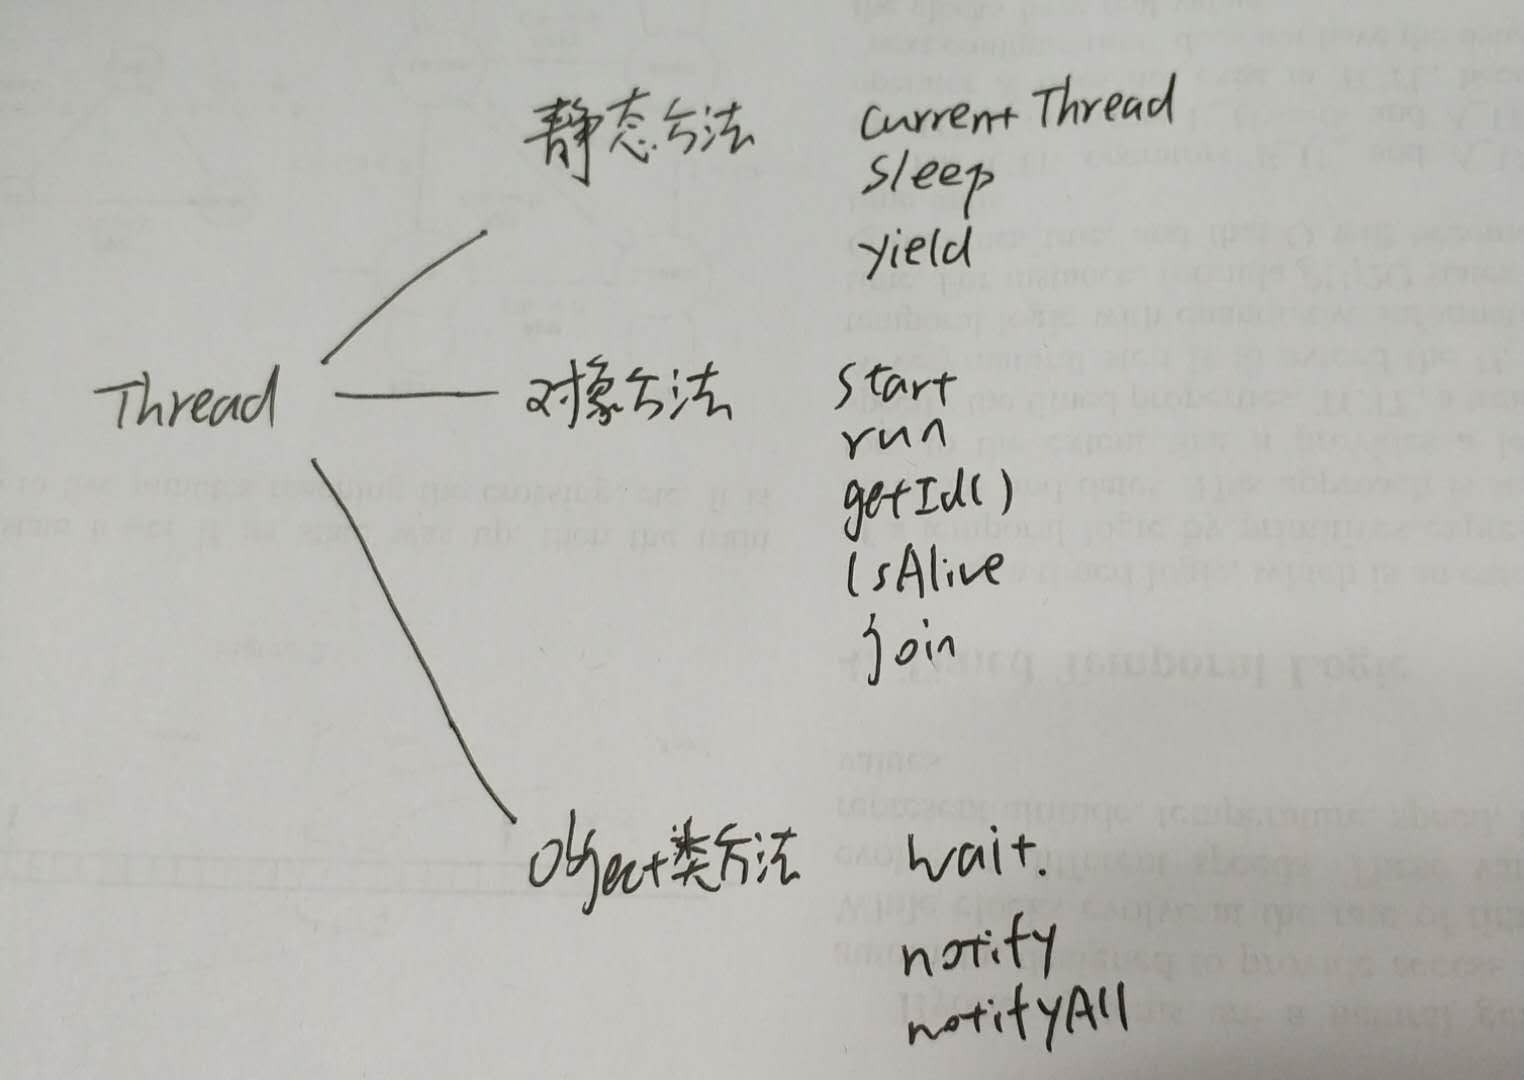 静态方法 currentThread
sleep
yield
Thread 对像方法 start
run
getId()
isAlive
join
Object类方法 wait.
notify
notifyAll